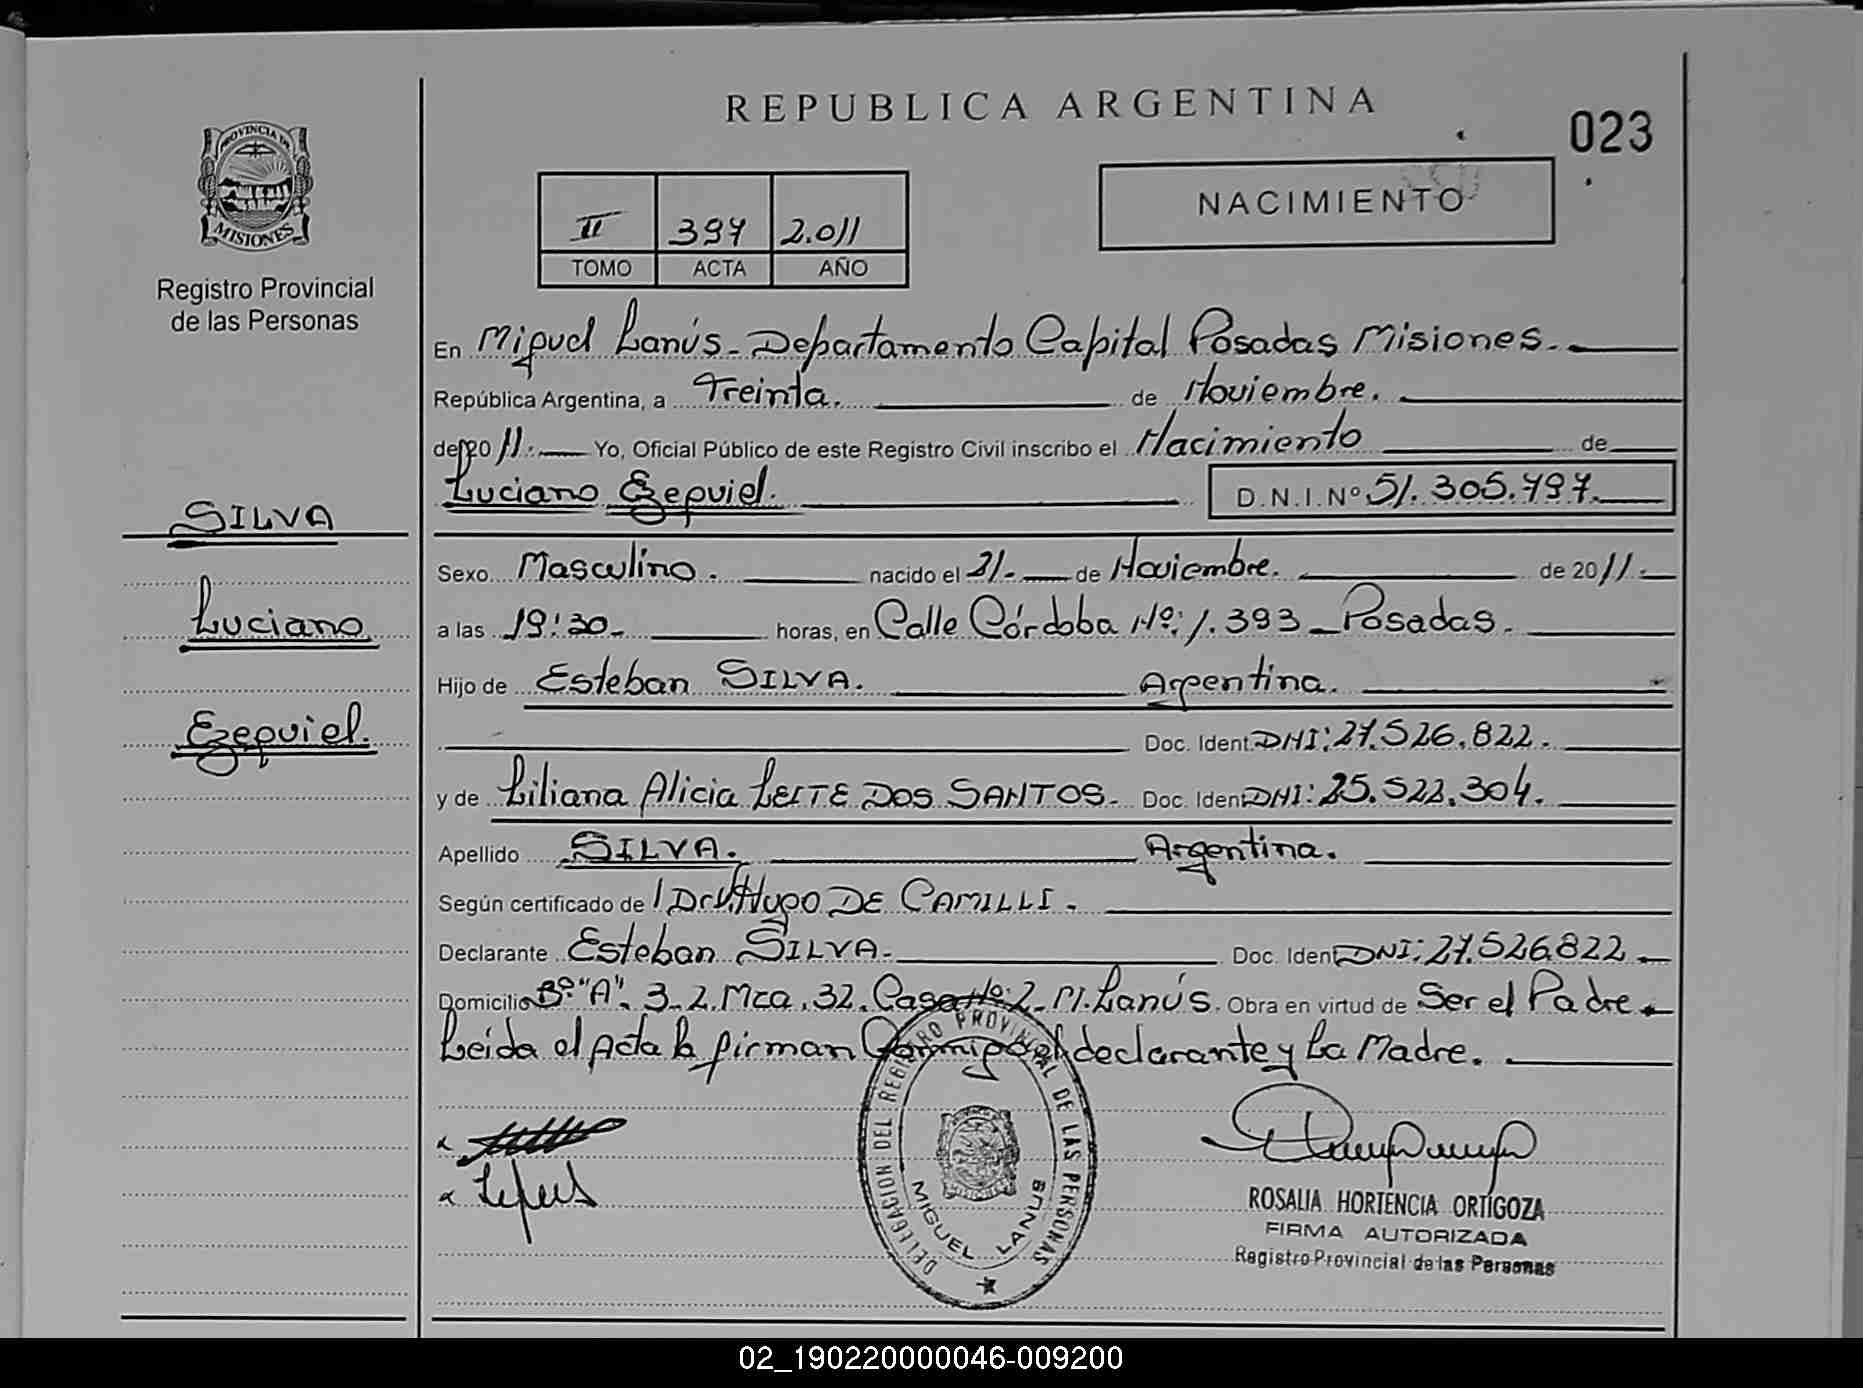 REPUBLICA ARGENTINA
023
PROVINCIA DE
MISIONES
Registro Provincial
de las Personas
II 397 2.011
TOMO ACTA AÑO
NACIMIENTO
En Miguel Lanús - Departamento Capital Posadas Misiones.-
República Argentina, a Treinta. de Noviembre.
de 2011.- Yo, Oficial Público de este Registro Civil inscribo el Nacimiento de
Luciano Ezequiel. D.N.I. Nº 51.305.797.
SILVA
Luciano
Ezequiel.
Sexo Masculino. nacido el 21.- de Noviembre. de 2011.-
a las 19:30- horas, en Calle Córdoba Nº: 1.393 - Posadas.
Hijo de Esteban SILVA. Argentina.
Doc. Ident. DNI: 27.526.822.
y de Liliana Alicia LEITE DOS SANTOS. Doc. Ident DNI: 25.522.304.
Apellido SILVA. Argentina.
Según certificado de Hugo DE CAMILLI.
Declarante Esteban SILVA.- Doc. Ident DNI: 27.526822.-
Domicilio Bº "A". 3-2. Mza. 32. Casa Nº: 2- M. Lanús. Obra en virtud de Ser el Padre.-
Leída el Acta la firman Conmigo el declarante y La Madre.
DELEGACION DEL REGISTRO PROVINCIAL DE LAS PERSONAS
MIGUEL LANUS
ROSALIA HORTENCIA ORTIGOZA
FIRMA AUTORIZADA
Registro Provincial de las Personas
02_190220000046-009200